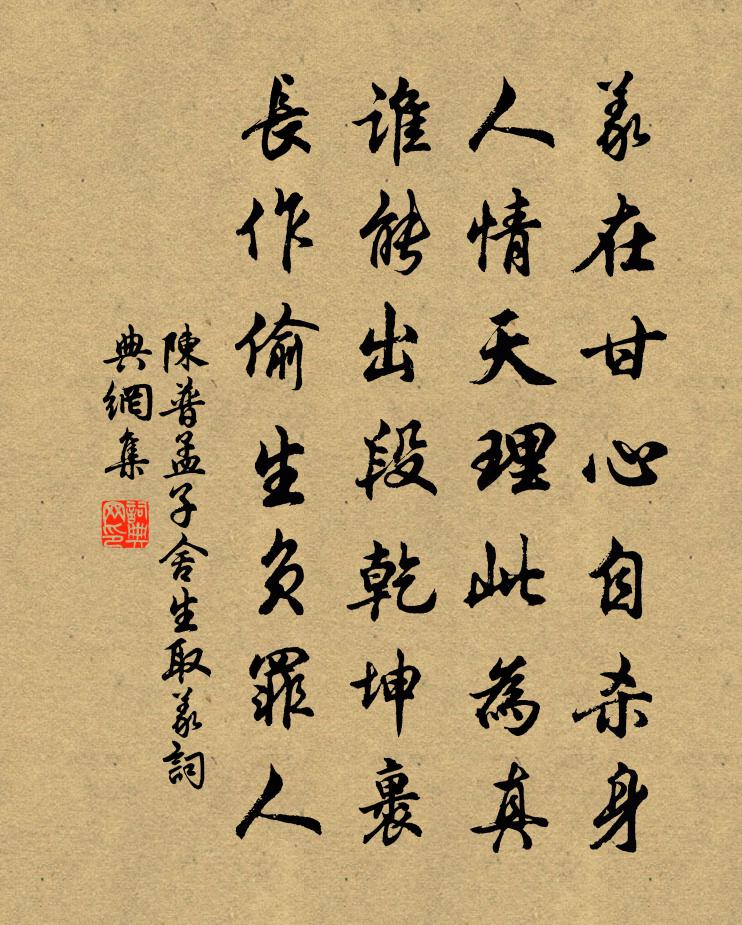 義在甘心自杀身
人情天理此為真
誰能出段乾坤裹
長作偷生负罪人
陳普孟子舍生取義詞
典網集
詞典网印